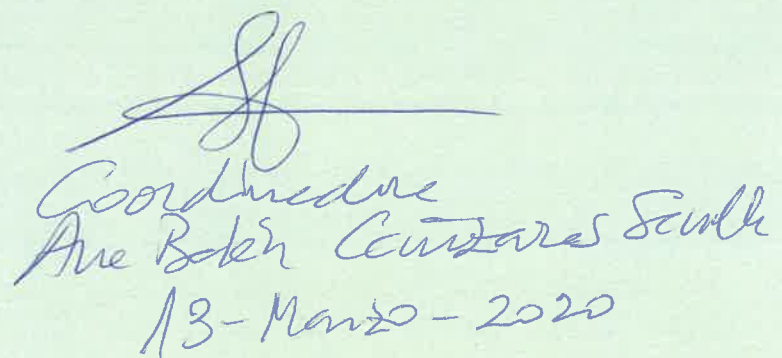 Coordinadora
Ana Belén Cañizares Sevilla
13-Marzo-2020